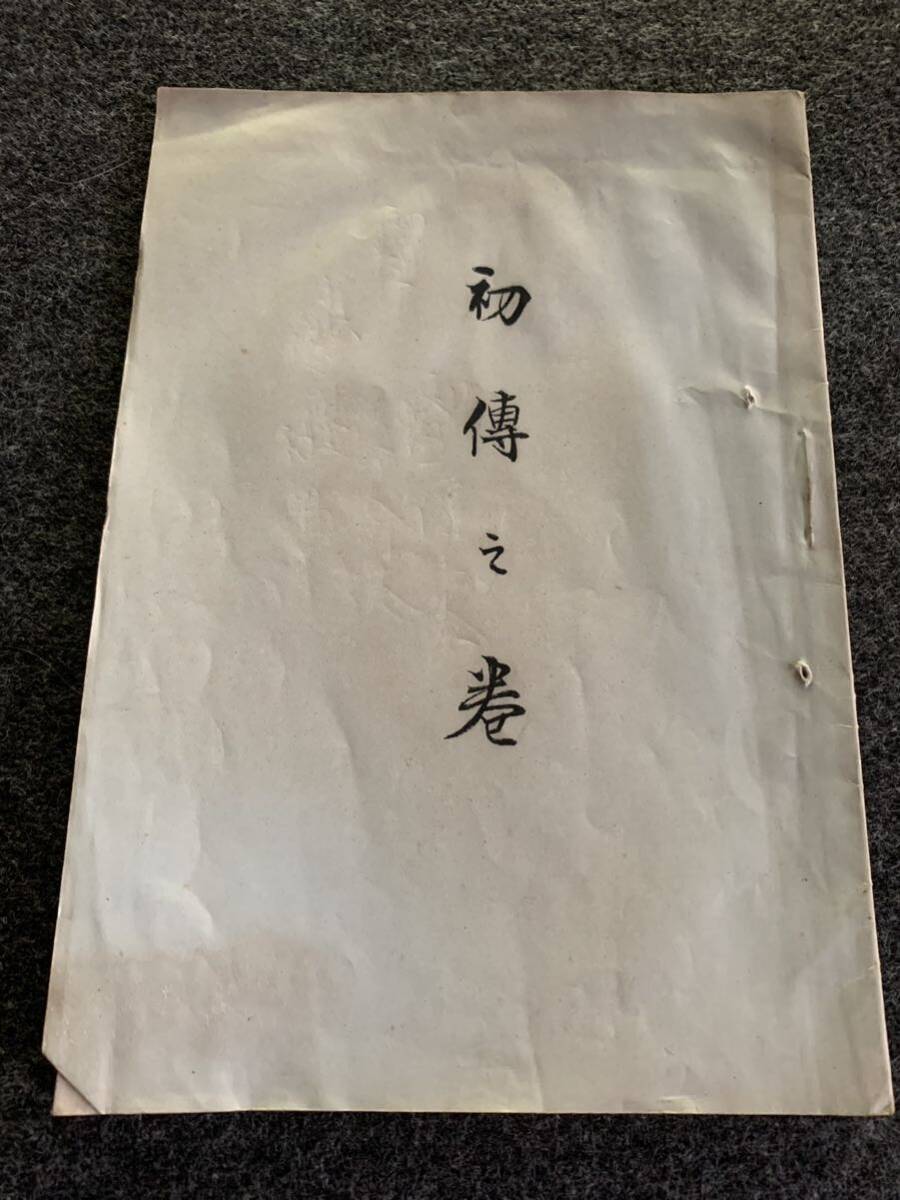 初傳之巻